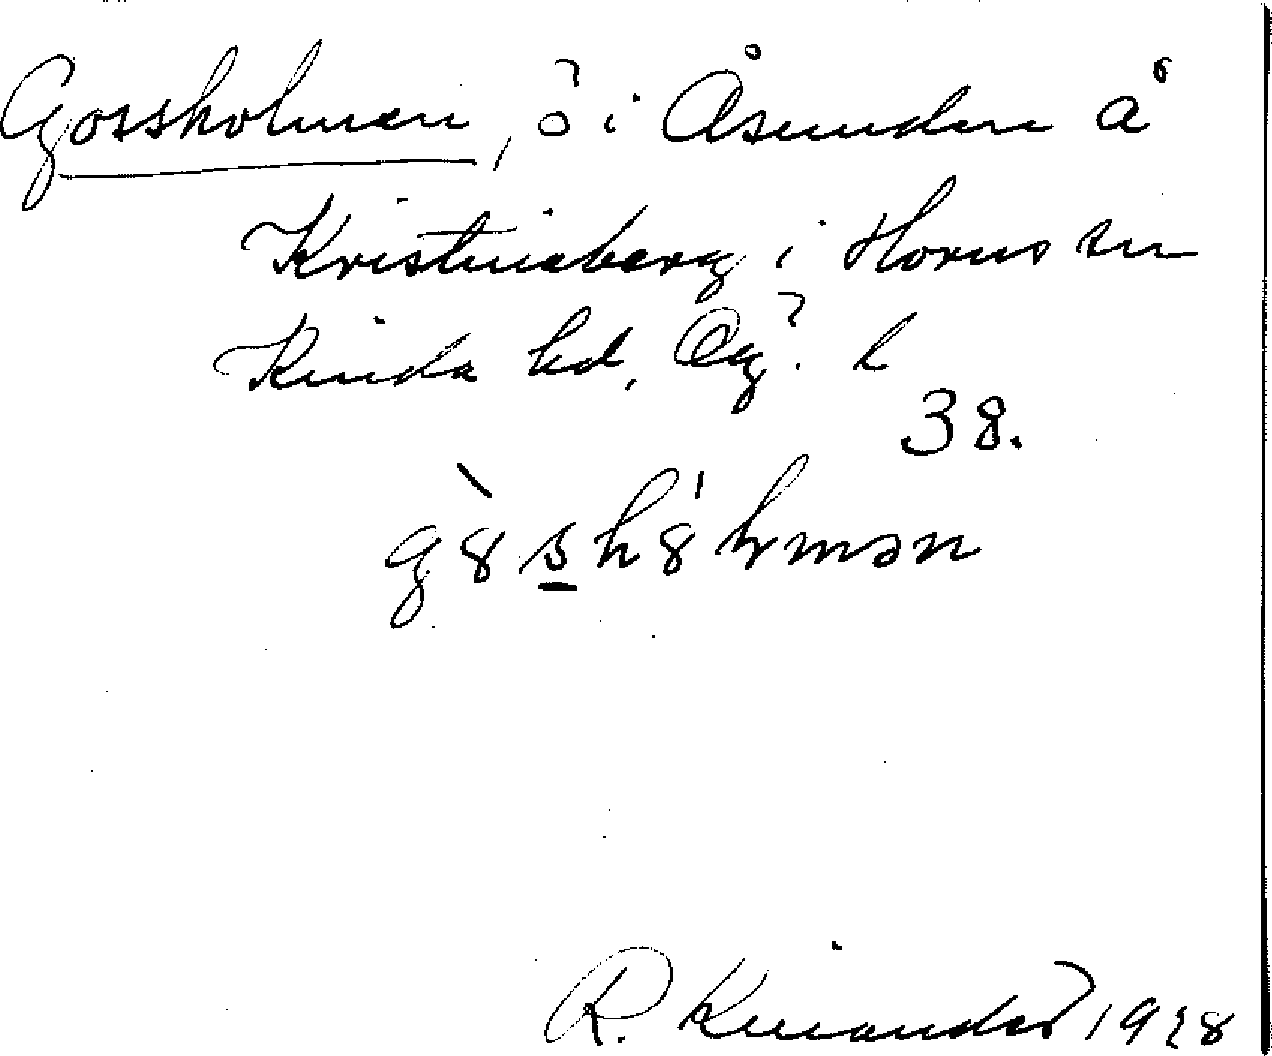 Gossholmen, ö i Åsunden å
Kristineberg i Horns sn
Kinda hd, Ög. l
38.
g8̀sh8́lmən
R. Kinander 1928